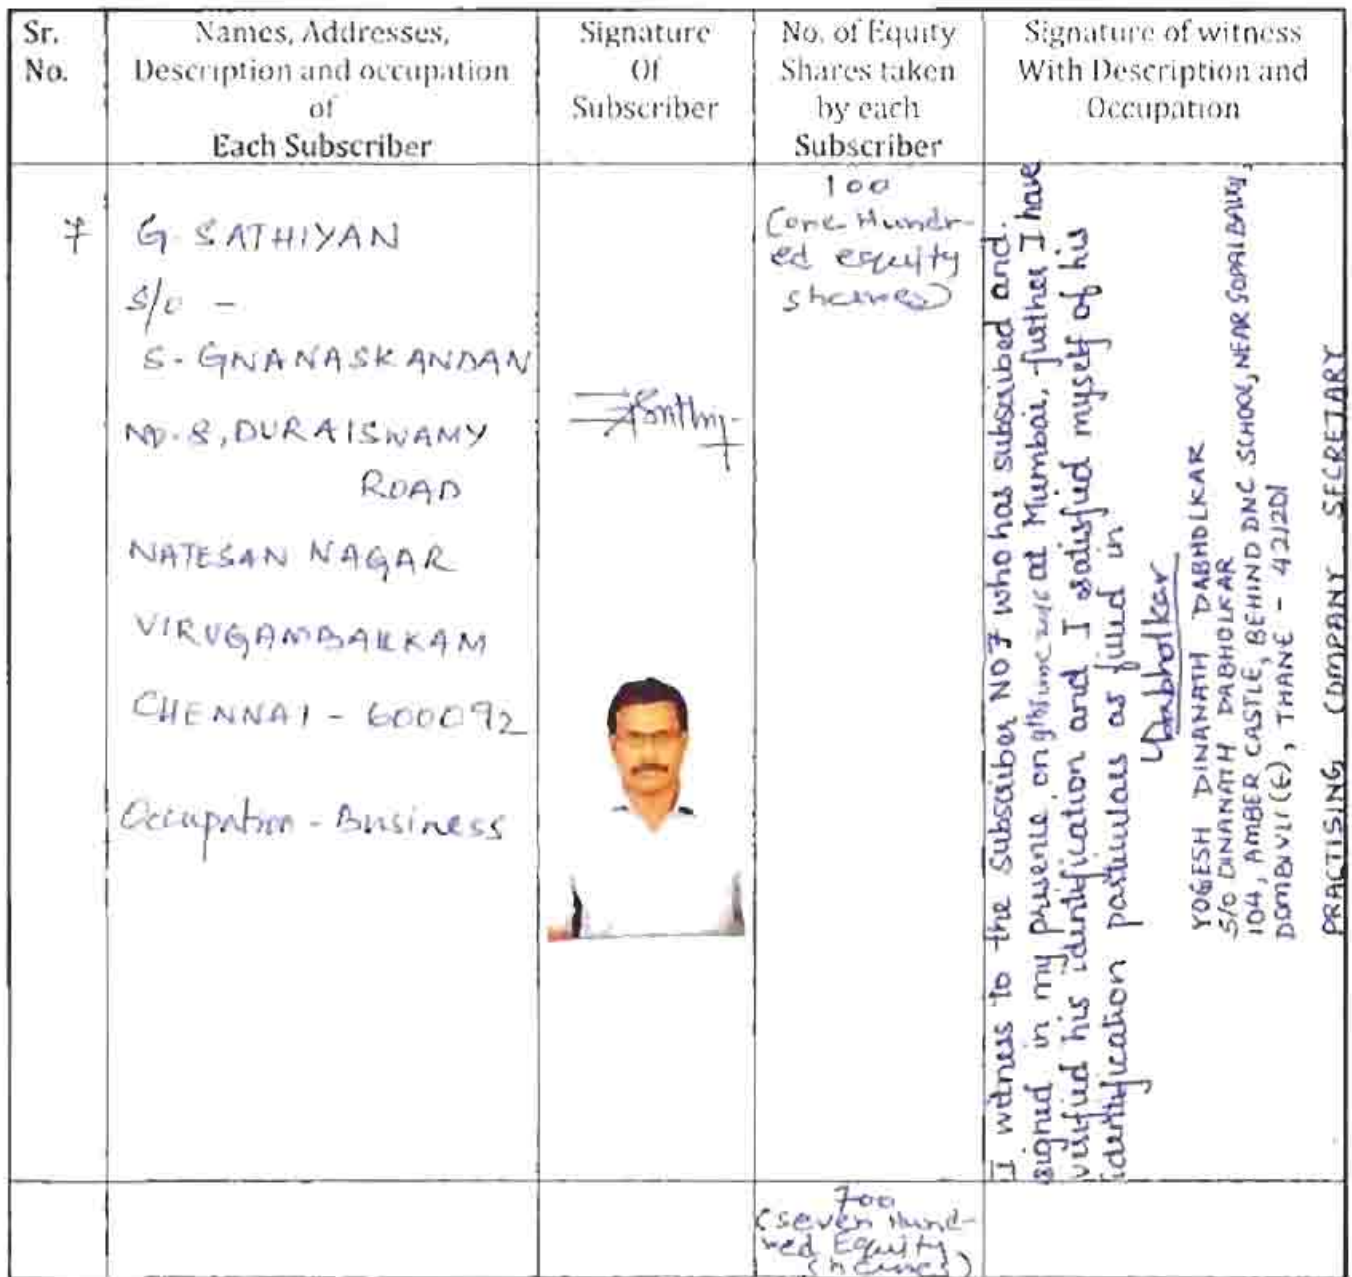 Sr.
No.
Names, Addresses,
Description and occupation
of
Each Subscriber
Signature
Of
Subscriber
No. of Equity
Shares taken
by each
Subscriber
Signature of witness
With Description and
Occupation
7
G. SATHIYAN
S/o -
S. GNANASKANDAN
NO. 8, DURAISWAMY
ROAD
NATESAN NAGAR
VIRUGAMBAKKAM
CHENNAI - 600092
Occupation - Business
100
(one Hundr-
ed equity
shares)
I witness to the subscriber NO 7 who has subscribed and
signed in my presence on 9th June 2016 at Mumbai, further I have
verified his identification and I satisfied myself of his
identification particulars as filled in
YDabholkar
YOGESH DINANATH DABHOLKAR
S/O DINANATH DABHOLKAR
104, AMBER CASTLE, BEHIND DNC SCHOOL, NEAR GOPAL BAUG,
DOMBIVLI (E), THANE - 421201
PRACTISING COMPANY SECRETARY
700
(seven Hund-
red Equity
shares)